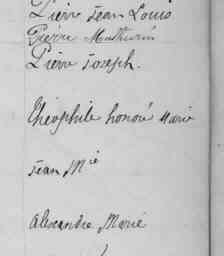 Pierre Jean Louis
Pierre Mathurin
Pierre Joseph.
Théophile honoré Marie
Jean Mie
Alexandre Marie